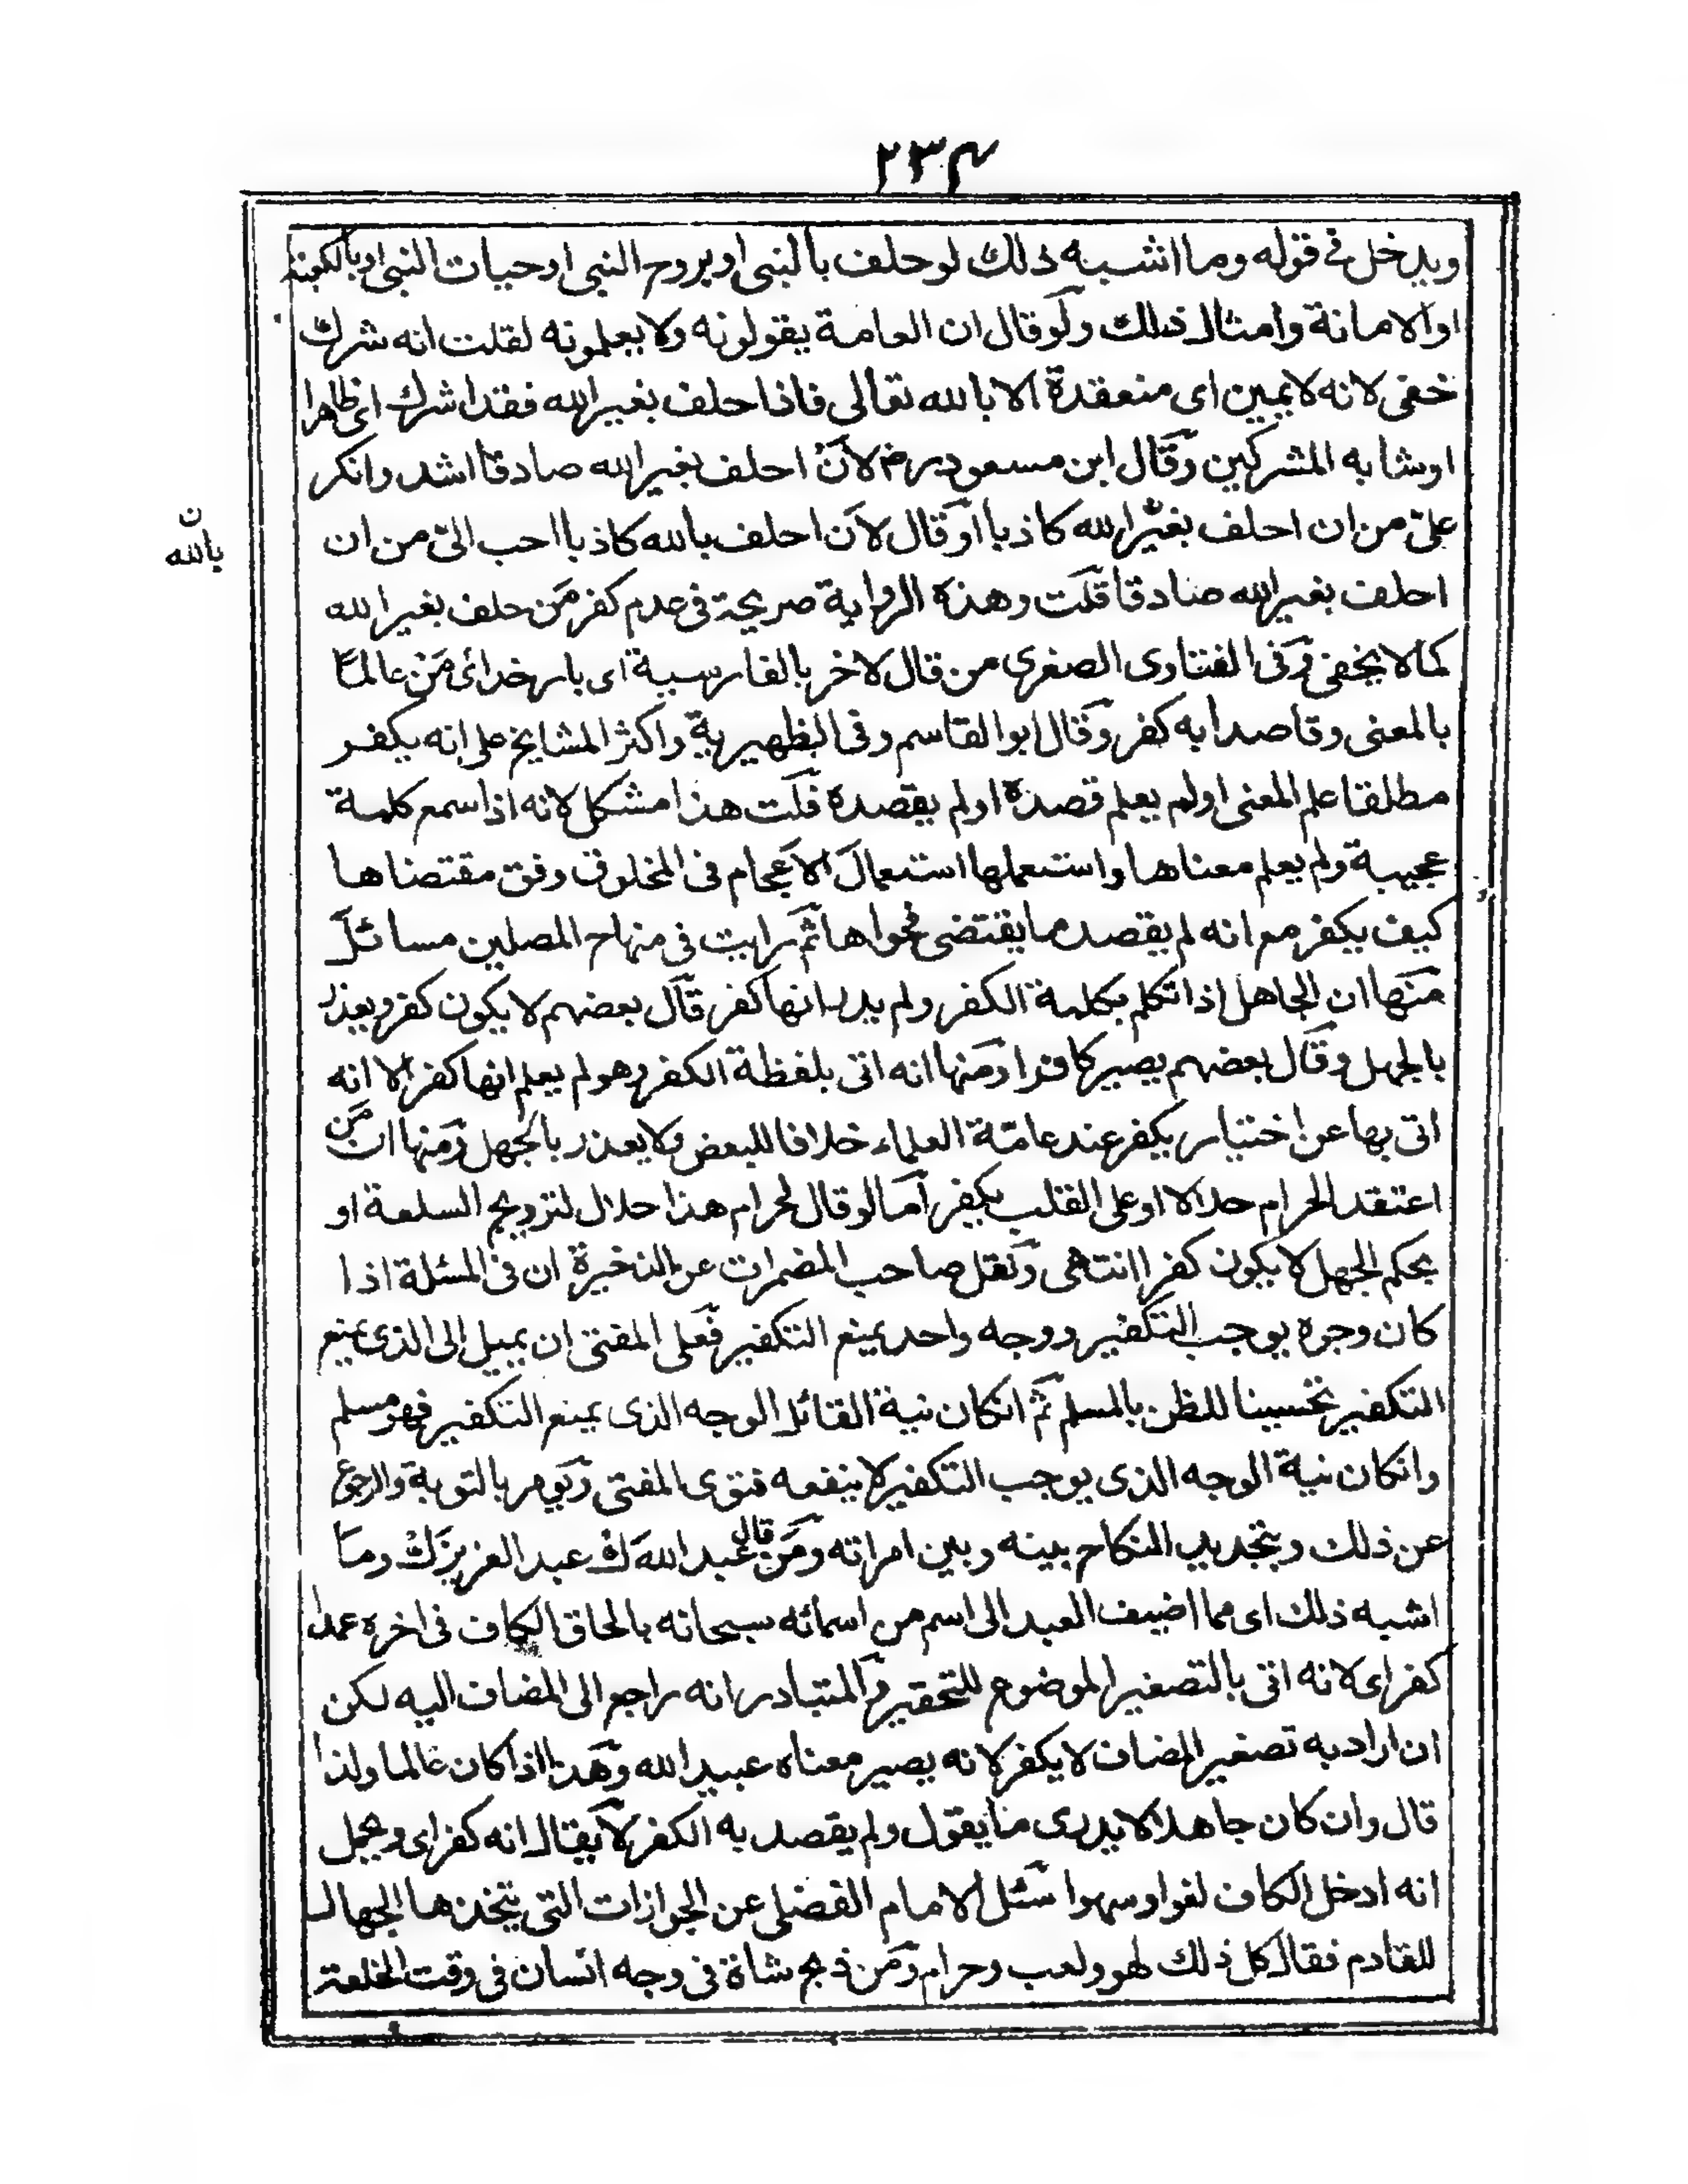 ٢٣٤
ويدخل في قوله وما اشبه ذلك لو حلف بالنبي او بروح النبي او حيات النبي او بالكعبة
او الامانة وامثال ذلك ولو قال ان العامة يقولونه ولا يعلمونه لقلت انه شرك
خفي لانه لا يمين اى منعقدة الا بالله تعالى فاذا حلف بغير الله فقد اشرك اى ظاهرا
او شابه المشركين وقال ابن مسعود رض لان احلف بغير الله صادقا اشد وانكر
علىّ من ان احلف بغير الله كاذبا او قال لان احلف بالله كاذبا احب الىّ من ان
ن
بالله
احلف بغير الله صادقا قلت وهذه الرواية صريحة فى عدم كفر من حلف بغير الله
كما لا يخفى وفى الفتاوى الصغرى من قال لاخر بالفارسية اى بار خداى من عالما
بالمعنى وقاصدا به كفر وقال ابو القاسم وفى الظهيرية واكثر المشايخ على انه يكفر
مطلقا علم المعنى او لم يعلم قصده او لم يقصده قلت هذا مشكل لانه اذا سمع كلمة
عجيبة ولم يعلم معناها واستعملها استعمال الاعجام فى المخلوق وفق مقتضاها
كيف يكفر مع انه لم يقصد ما يقتضى فحواها ثم رايت فى منهاج المصلين مسائل
منها ان الجاهل اذا تكلم بكلمة الكفر ولم يدر انها كفر قال بعضهم لا يكون كفر ويعذر
بالجهل وقال بعضهم يصير كافرا ومنها انه اتى بلفظة الكفر وهو لم يعلم انها كفر الا انه
اتى بها عن اختيار يكفر عند عامّة العلماء خلافا للبعض ولا يعذر بالجهل ومنها ان من
اعتقد الحرام حلالا او على القلب يكفر اما لو قال لحرام هذا حلال لترويج السلعة او
بحكم الجهل لا يكون كفرا انتهى ونقل صاحب المضمرات عن الذخيرة ان فى المسئلة اذا
كان وجوه يوجب التكفير ووجه واحد يمنع التكفير فعلى المفتى ان يميل الى الذى يمنع
التكفير تحسينا للظن بالمسلم ثم انكان نية القائل الوجه الذى يمنع التكفير فهو مسلم
وانكان نية الوجه الذى يوجب التكفير لا ينفعه فتوى المفتى ويومر بالتوبة والرجوع
عن ذلك وبتجديد النكاح بينه وبين امراته ومن قال عبد الله ك عبد العزيز ك وما
اشبه ذلك اى مما اضيف العبد الى اسم من اسمائه سبحانه بالحاق الكاف فى اخره عمدا
كفر اى لانه اتى بالتصغير الموضوع للتحقير والمتبادر انه راجع الى المضاف اليه لكن
ان اراد به تصغير المضاف لا يكفر لانه يصير معناه عبيد الله وهذا اذا كان عالما ولذا
قال وان كان جاهلا لا يدرى ما يقول ولم يقصد به الكفر لا يقال انه كفر اى ويحمل
انه ادخل الكاف لغوا وسهوا سئل الامام الفضلى عن الجوازات التى يتخذها الجهال
للقادم فقال كل ذلك لهو ولعب وحرام ومن ذبح شاة فى وجه انسان فى وقت الخلعة